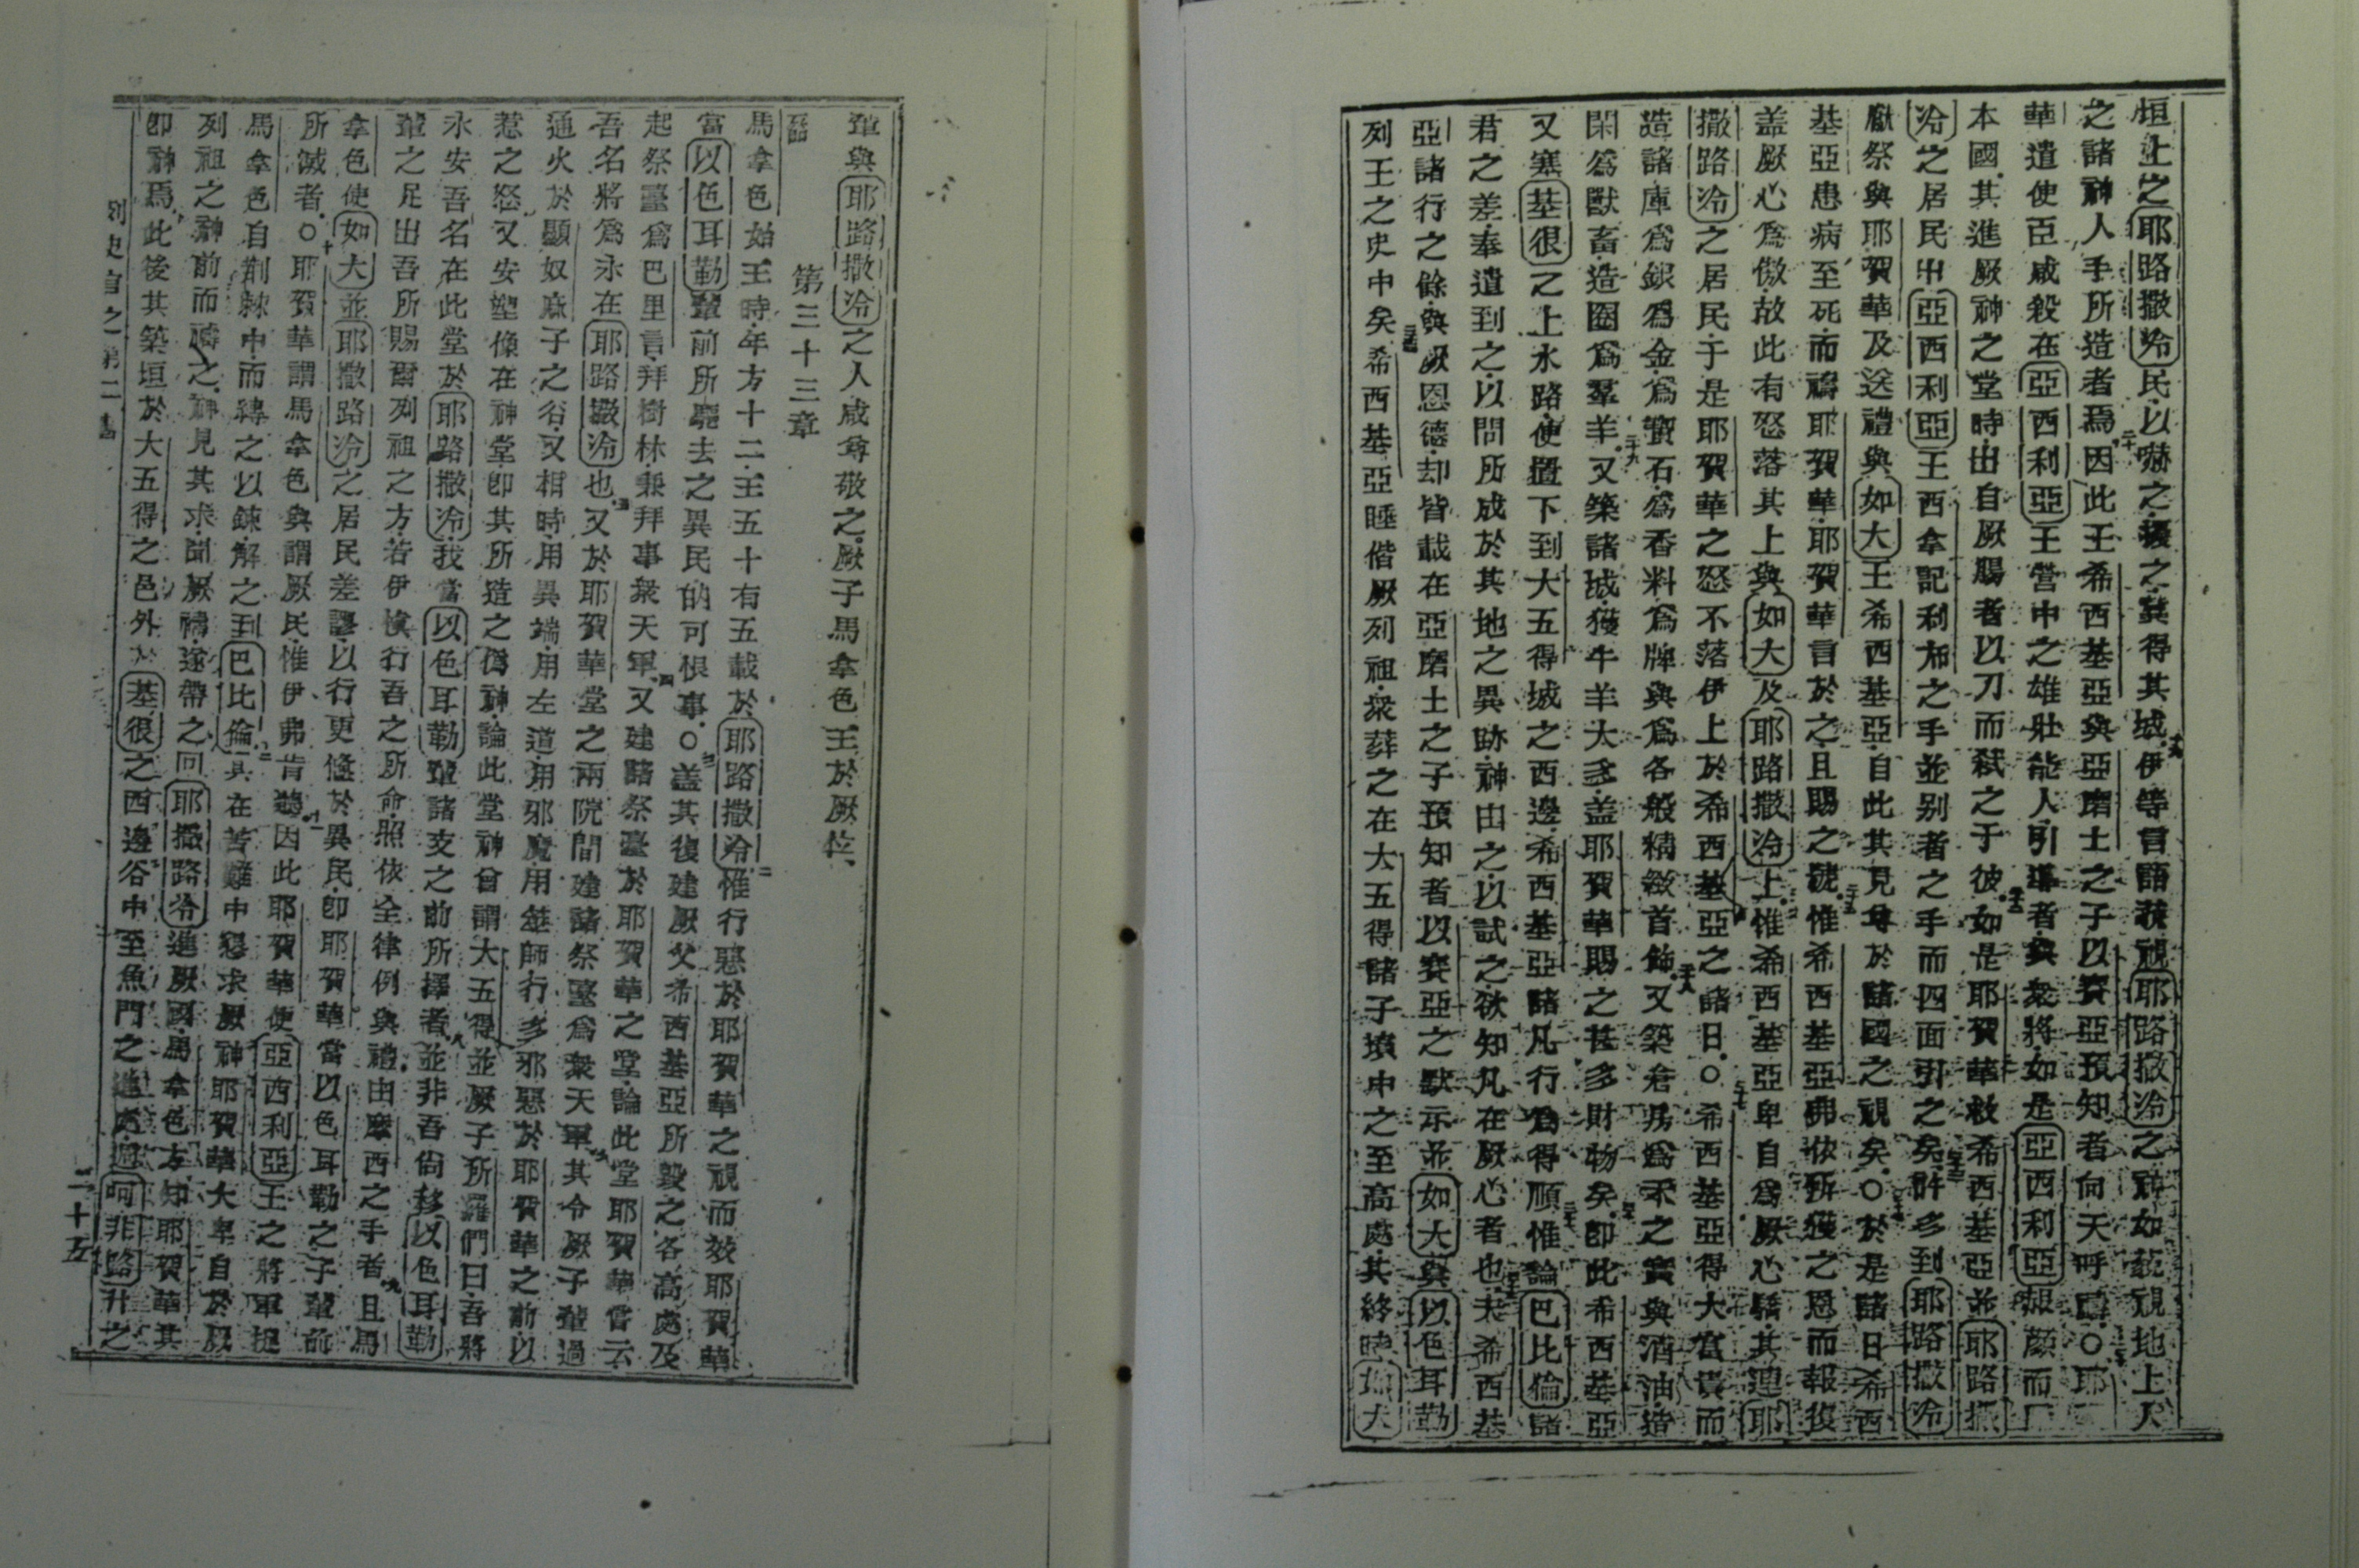 垣上之耶路撒冷民以嚇之擾之冀得其城十九伊等言語藐視耶路撒冷之神如藐視地上人
之諸神人手所造者焉二十因此王希西基亞與亞磨士之子以賽亞預知者向天呼禱○耶
華遣使臣咸殺在亞西利亞王營中之雄壯能人引導者與衆將如是亞西利亞赧顔而
本國其進厥神之堂時出自厥腸者以刀而弒之于彼如是耶賀華救希西基亞並耶路撒
冷之居民出亞西利亞王西拿記利布之手並别者之手而四面引之矣二十三許多到耶路撒冷
獻祭與耶賀華及送禮與如大王希西基亞自此其見尊於諸國之視矣○二十四於是諸日希西
基亞患病至死而禱耶賀華耶賀華言於之且賜之號二十五惟希西基亞弗依所獲之恩而報復
盖厥心爲傲故此有怒落其上與如大及耶路撒冷上二十六惟希西基亞卑自爲厥心驕其連耶
撒路冷之居民于是耶賀華之怒不落伊上於希西基亞之諸日○二十七希西基亞得大富貴而
造諸庫爲銀爲金爲寶石爲香料爲牌與爲各般精緻首飾二十八又築倉房爲禾之實與酒油造
閑爲獸畜造圈爲羣羊二十九又築諸城獲牛羊大多盖耶賀華賜之甚多財物矣三十即此希西基亞
又塞基很之上水路使置下到大五得城之西邊希西基亞諸凡行爲得順三十一惟論巴比倫諸
君之差奉遣到之以問所成於其地之異跡神由之以試之欲知凡在厥心者也三十二夫希西基
亞諸行之餘與厥恩德却皆載在亞磨士之子預知者以賽亞之默示並如大與以色耳勒
列王之史中矣三十三希西基亞睡偕厥列祖衆葬之在大五得諸子墳中之至高處其終時如大
輩與耶路撒冷之人咸尊敬之厥子馬拿色王於厥位
第三十三章
馬拿色始王時年方十二王五十有五載於耶路撒冷二惟行惡於耶賀華之視而效耶賀華
當以色耳勒輩前所驅去之異民的可恨事○三盖其復建厥父希西基亞所毀之各高處及
起祭臺爲巴里言拜樹林兼拜事衆天軍四又建諸祭臺於耶賀華之堂論此堂耶賀華嘗云
吾名將爲永在耶路撒冷也五又於耶賀華堂之兩院間建諸祭臺爲衆天軍六其令厥子輩過
通火於顯奴庶子之谷又相時用異端用左道用邪魔用筮師行多邪惡於耶賀華之前以
惹之怒七又安塑像在神堂即其所造之偶神論此堂神曾謂大五得並厥子所羅們曰吾將
永安吾名在此堂於耶路撒冷我當以色耳勒輩諸支之前所擇者八並非吾尙移以色耳勒
輩之足出吾所賜爾列祖之方若伊愼行吾之所命照依全律例與禮由摩西之手者九且馬
拿色使如大並耶撒路冷之居民差謬以行更慝於異民即耶賀華當以色耳勒之子輩前
所滅者○十耶賀華謂馬拿色與謂厥民惟伊弗肯聽十一因此耶賀華使亞西利亞王之將軍捉
馬拿色自荆棘中而縛之以鍊解之到巴比倫十二其在苦難中懇求厥神耶賀華大卑自於厥
列祖之神前而禱之神見其求聞厥禱遂帶之回耶撒路冷進厥國馬拿色方知耶賀華其
即神焉此後其築垣於大五得之邑外於基很之西邊谷中至魚門之進處過呵非路升之
列史書之第二書
二十五